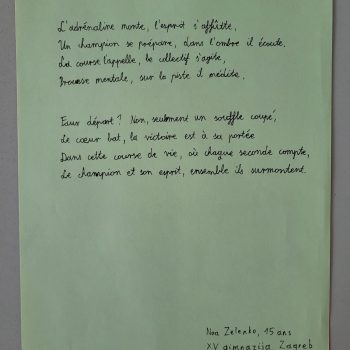 L'adrénaline monte, l'esprit s'affûtte,
Un champion se prépare, dans l'ombre il écoute,
La course l'appelle, le collectif s'agite,
Prouesse mentale, sur la piste il médite.
Faux départ? Non, seulment un souffle coupé,
Le cœur bat, la victoire est à sa portée
Dans cette course de vie, où chaque seconde compte,
Le champion et son esprit, ensemble ils surmontent.
Noa Zelenko, 15 ans
XV gimnazija Zagreb